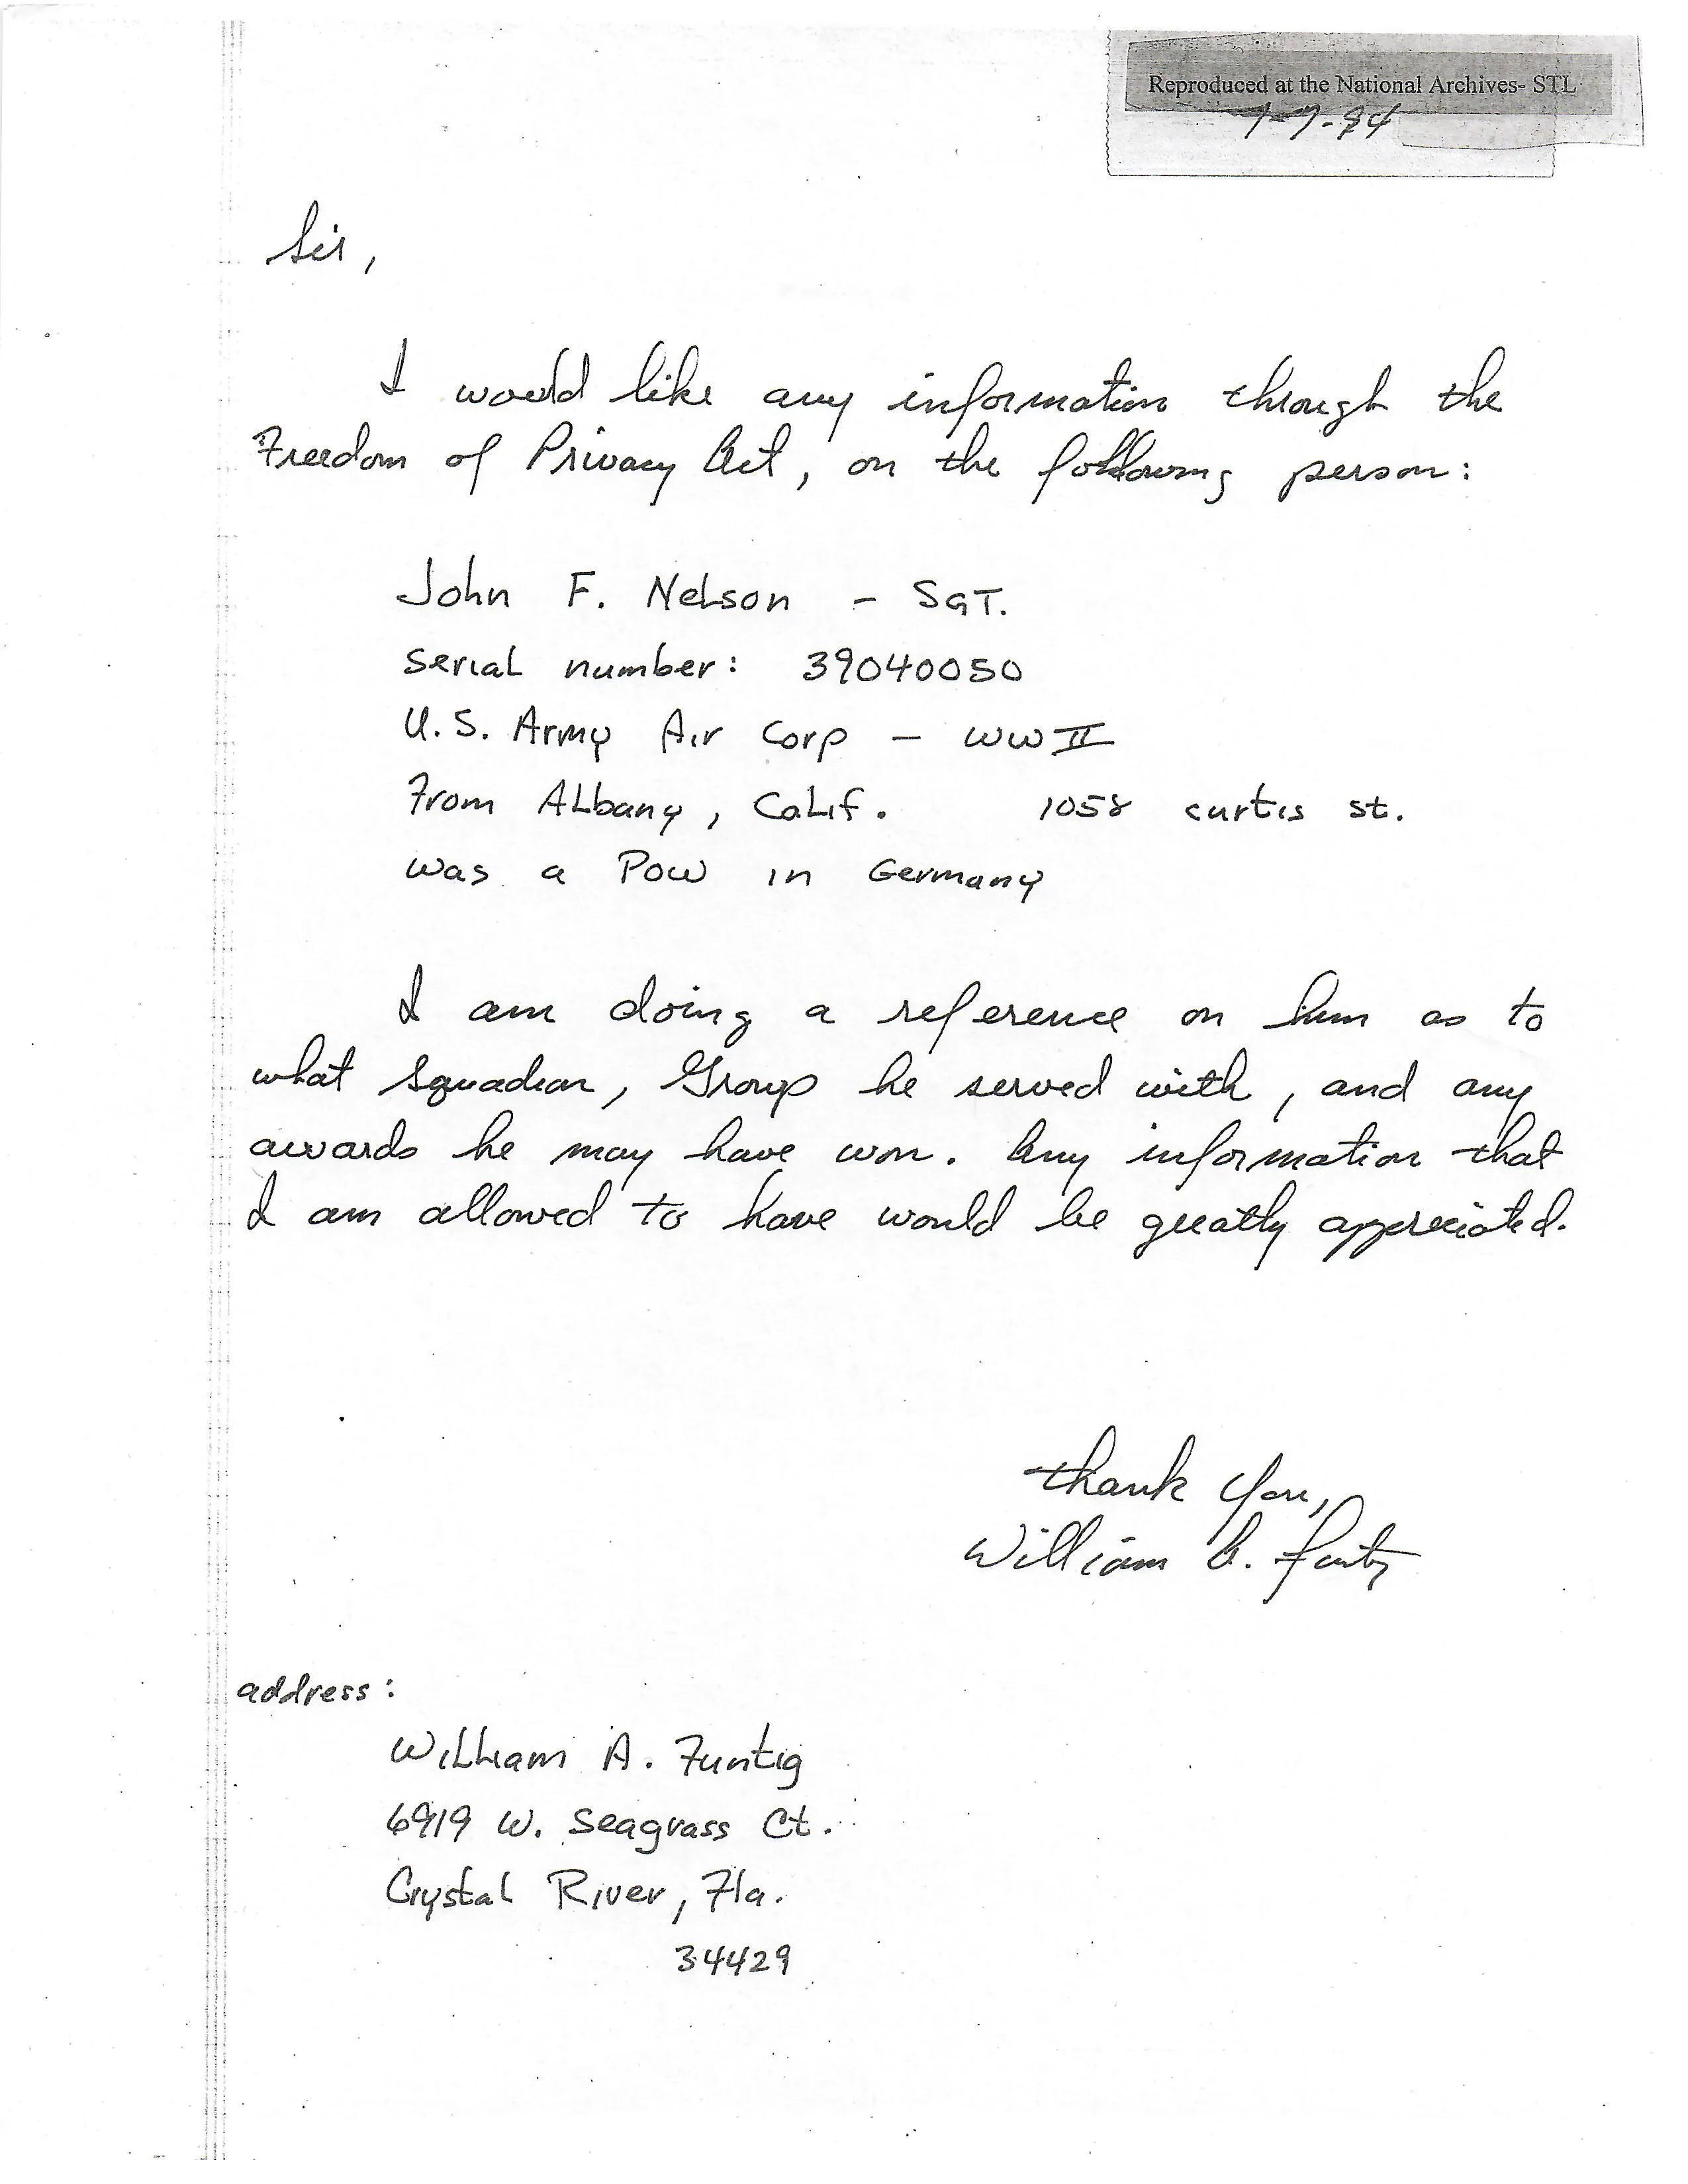 Reproduced at the National Archives- STL
7-7-94
Sir,
I would like any information through the
Freedom of Privacy Act, on the following person:
John F. Nelson - SGT.
serial number: 39040050
U.S. Army Air Corp - WW II
From Albany, Calif. 1058 curtis st.
was a POW in Germany
I am doing a reference on him as to
what squadron, Group he served with, and any
awards he may have won. Any information that
I am allowed to have would be greatly appreciated.
thank you,
William A. Funtig
address:
William A. Funtig
6919 W. Seagrass Ct.
Crystal River, Fla.
34429